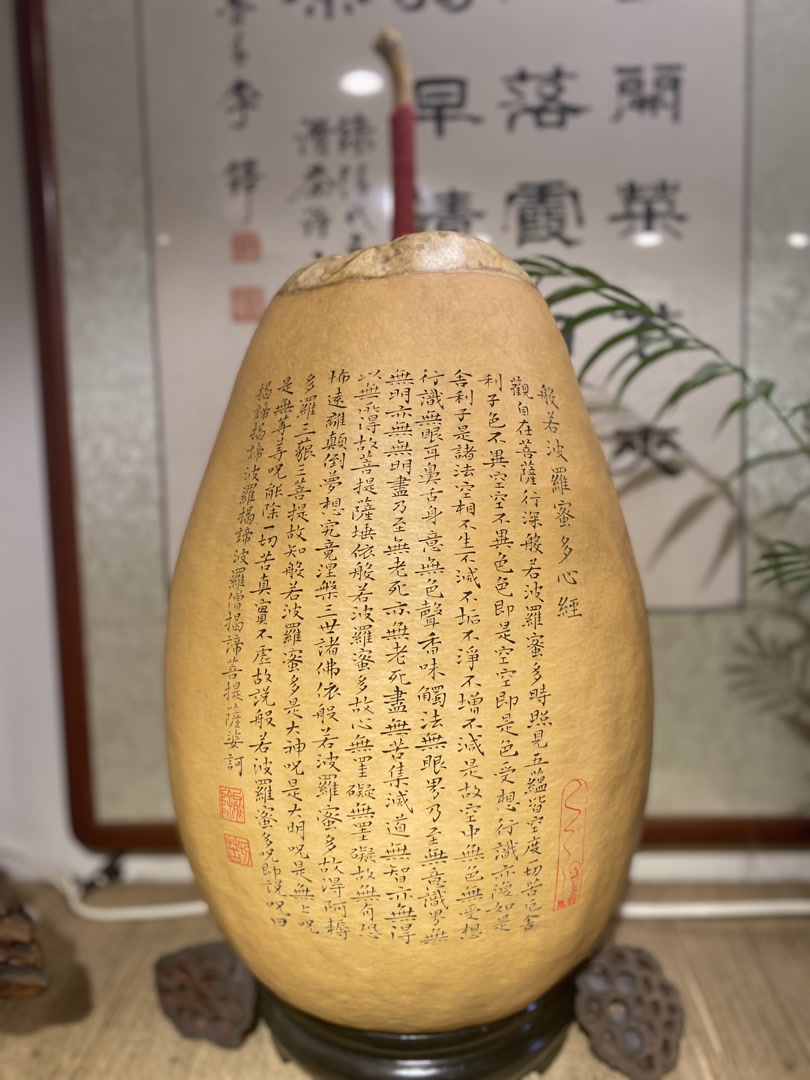 般若波羅蜜多心經
觀自在菩薩行深般若波羅蜜多時照見五蘊皆空度一切苦厄舍
利子色不異空空不異色色即是空空即是色受想行識亦復如是
舍利子是諸法空相不生不滅不垢不淨不增不減是故空中無色無受想
行識無眼耳鼻舌身意無色聲香味觸法無眼界乃至無意識界無
無明亦無無明盡乃至無老死亦無老死盡無苦集滅道無智亦無得
以無所得故菩提薩埵依般若波羅蜜多故心無罣礙無罣礙故無有恐
怖遠離顛倒夢想究竟涅槃三世諸佛依般若波羅蜜多故得阿耨
多羅三藐三菩提故知般若波羅蜜多是大神呪是大明呪是無上呪
是無等等呪能除一切苦真實不虛故說般若波羅蜜多呪即說呪曰
揭諦揭諦波羅揭諦波羅僧揭諦菩提薩婆訶
落霞
早清